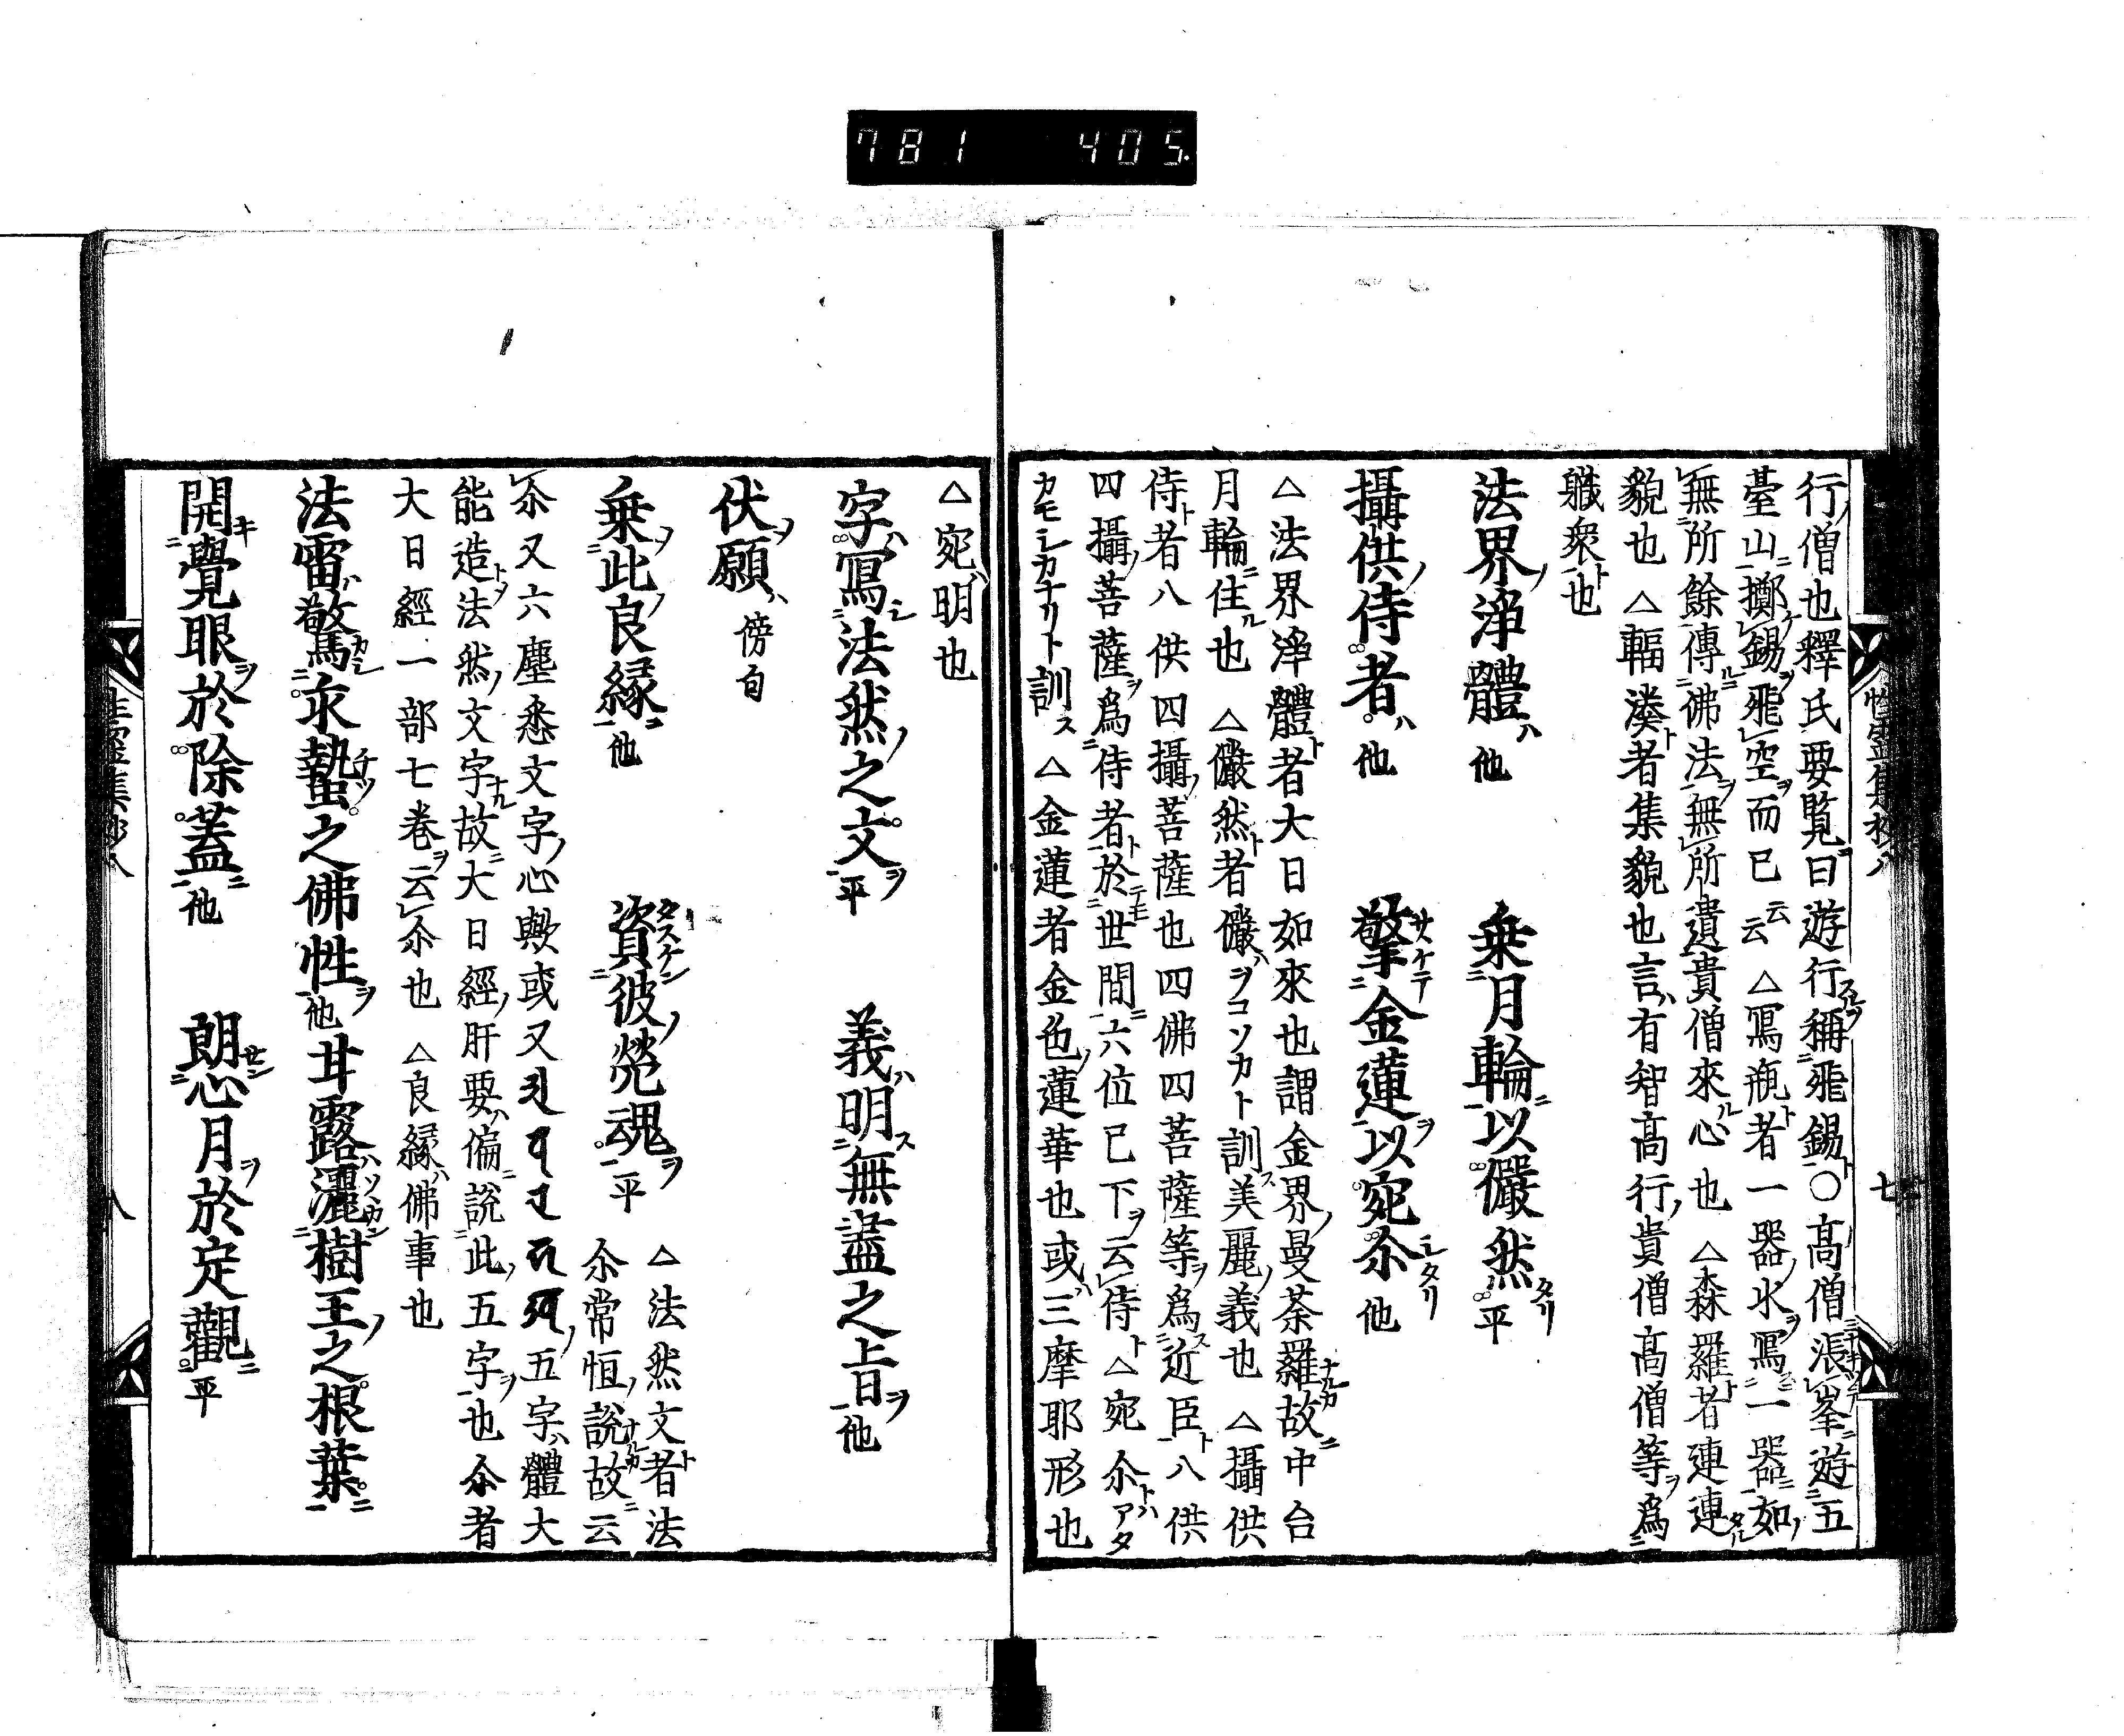 781 405
行僧也釋氏要覧曰遊行稱飛錫○髙僧漲峯遊五
臺山擲錫飛空而已云云△寫瓶者一器水寫一器如
無所餘傳佛法無所遺貴僧來心也△森羅者連連
貌也△輻湊者集貌也言有智髙行貴僧髙僧等爲
職衆也
法界淨體ハ他 乗月輪以儼然タリ平
攝供侍者ハ他 擎サヽケテ金蓮以宛尒シタリ他
△法界淨體者大日如來也謂金界曼荼羅故中台
月輪住也△儼然者儼ヲコソカト訓美麗義也△攝供
侍者八供四攝菩薩也四佛四菩薩等爲近臣八供
四攝菩薩爲侍者於世間六位已下云侍△宛尒トハアタ
カモシカナリト訓ス△金蓮者金色蓮華也或三摩耶形也
△宛明也
字寫法然之文平 義明無盡之上旨他
伏願傍自
乗此良縁他 資タスケン彼煢魂平 △法然文者法
尒常恒說故云
尒又六塵悉文字心歟或又 五字體大
能造法然文字故大日經肝要偏說此五字也尒者
大日經一部七巻云尒也△良縁佛事也
法雷驚永蟄之佛性他甘露灑ソヽカン樹王之根葉
開覺眼於除蓋他 朗心月於定觀平
七
八